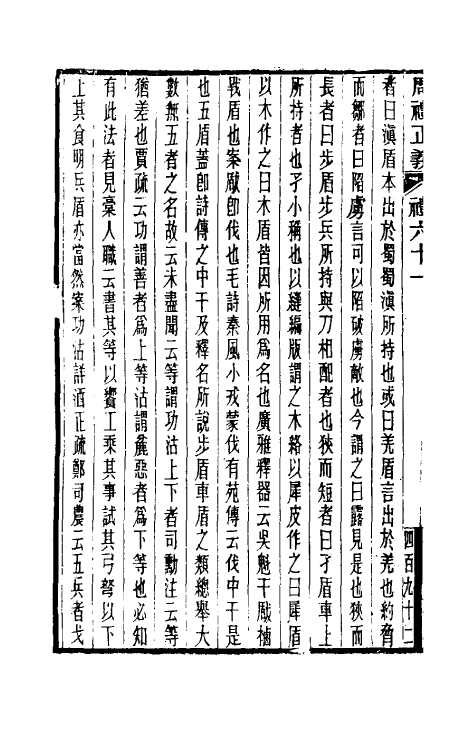 周禮正義 禮六十一 四百九十二
者曰滇盾本出於蜀蜀滇所持也或曰羌盾言出於羌也約脅
而鄒者曰陷虜言可以陷破虜敵也今謂之曰露見是也狹而
長者曰步盾步兵所持與刀相配者也狹而短者曰孑盾車上
所持者也孑小稱也以縫編版謂之木絡以犀皮作之曰犀盾
以木作之曰木盾皆因所用爲名也廣雅釋器云吳魁干瞂樐
戰盾也案瞂卽伐也毛詩秦風小戎蒙伐有苑傳云伐中干是
也五盾蓋卽詩傳之中干及釋名所說步盾車盾之類總舉大
數無五者之名故云未盡聞云等謂功沽上下者司勳注云等
猶差也賈疏云功謂善者爲上等沽謂麤惡者爲下等也必知
有此法者見稾人職云書其等以饗工乘其事試其弓弩以下
上其食明兵盾亦當然案功沽詳酒正疏鄭司農云五兵者戈